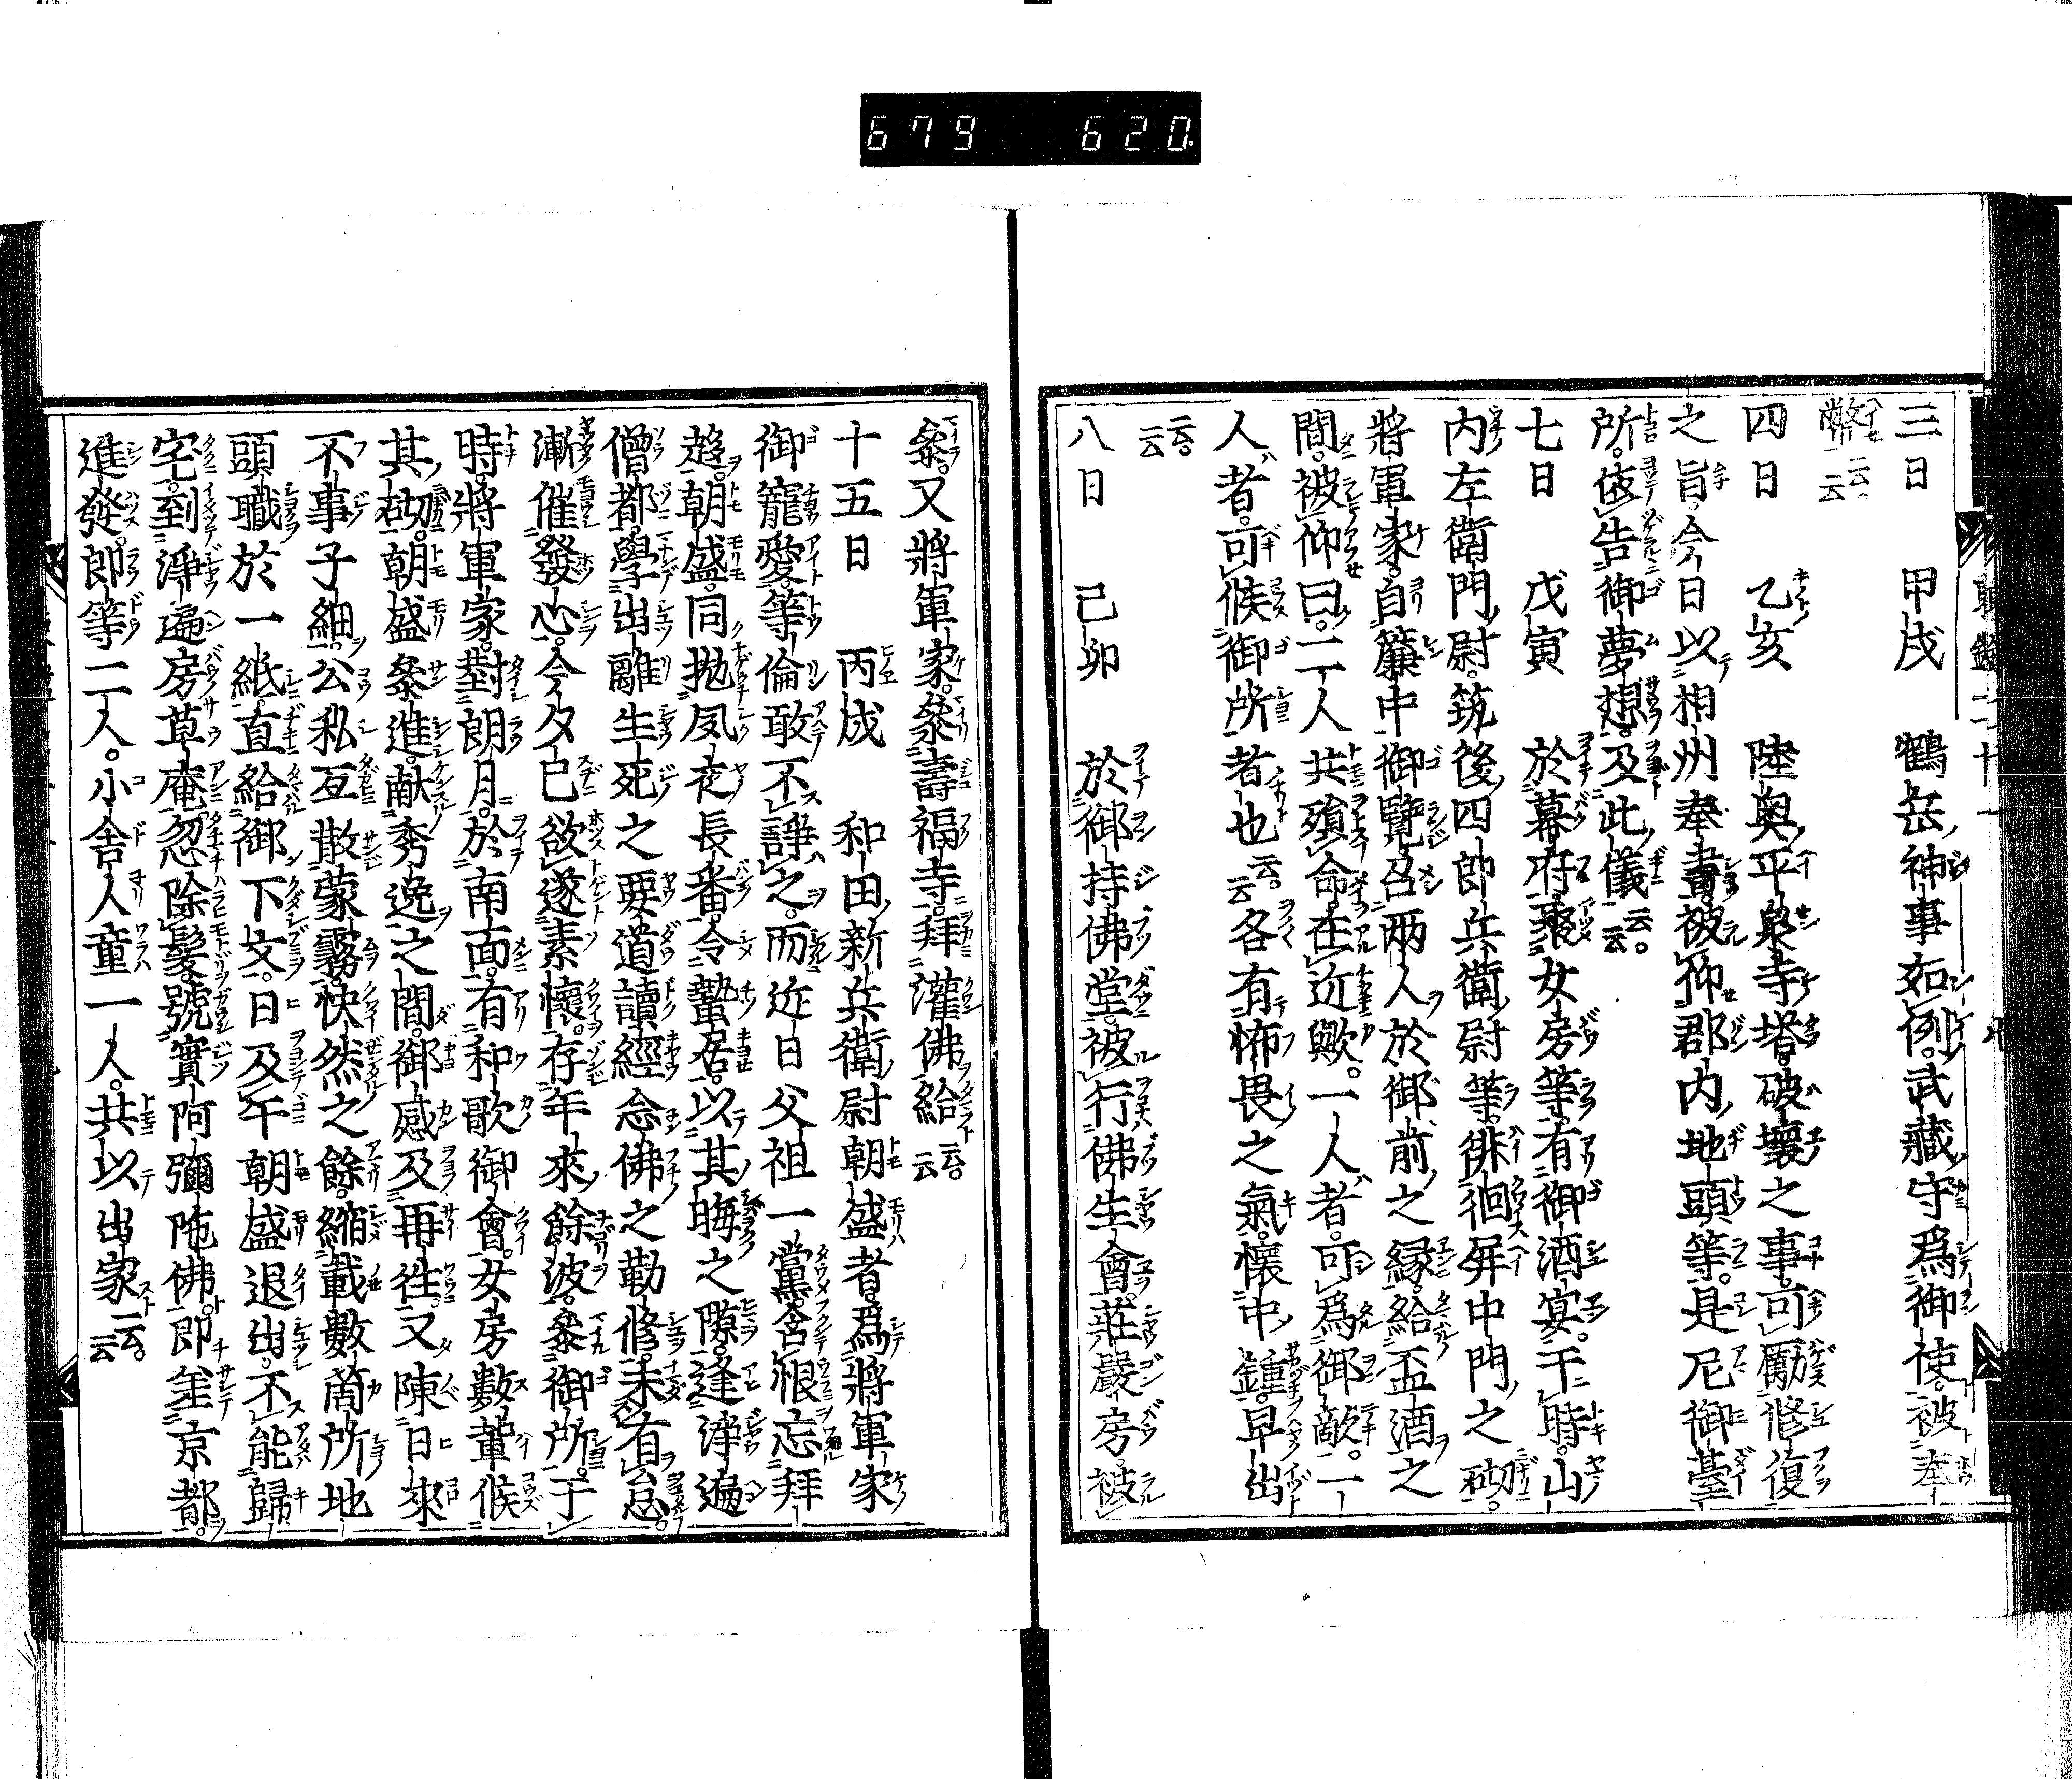 679 620
三日 甲戌 鶴岳神事如例。武藏守爲御使。被奉
幣云云
四日 乙亥 陸奥平泉寺塔。破壞之事。可勵修復
之旨。今日以相州奉書。被仰郡内地頭等。是尼御臺
所。依告御夢想。及此儀云云。
七日 戊寅 於幕府聚女房等。有御酒宴。于時。山
内左衛門尉。筑後四郎兵衛尉等。徘徊屏中門之砌。
將軍家。自簾中御覽。召兩人於御前之縁。給盃酒之
間。被仰曰。二人共殞命在近歟。一人者。可爲御敵。一
人者。可候御所者也云云。各有怖畏之氣。懷中鍾。早出
云云。
八日 己卯 於御持佛堂。被行佛生會。莊嚴房。被
參。又將軍家。參壽福寺。拜灌佛給云云。
十五日 丙戌 和田新兵衛尉朝盛者。爲將軍家
御寵愛。等倫敢不諍之。而近日父祖一黨。含恨忘拜
趨。朝盛。同抛夙夜長番。令蟄居。以其晦之隙。逢淨遍
僧都。學出離生死之要道讀經念佛之勤修。未有怠。
漸催發心。今夕已欲遂素懷。存年來餘波。參御所。于
時。將軍家。對朗月。於南面。有和歌御會。女房數輩候
其砌。朝盛參進。献秀逸之間。御感及再往。又陳日來
不事子細。公私互散蒙霧。快然之餘。縮載數箇所地
頭職於一紙。直給御下文。日及午朝盛退出。不能歸
宅。到淨遍房草庵。忽除髮。號實阿彌陀佛。即差京都。
進發。郎等二人。小舎人童一人。共以出家云云。